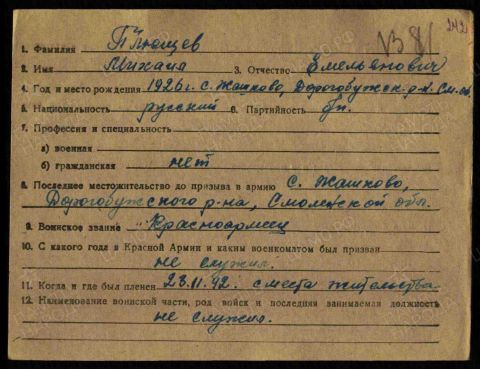 242
1. Фамилия Плющев
2. Имя Михаил 3. Отчество Емельянович
4. Год и место рождения 1926 г. с. Жашково, Дорогобужск. р-н. См. об.
5. Национальность русский 6. Партийность бп.
7. Профессия и специальность
а) военная
б) гражданская нет
8. Последнее местожительство до призыва в армию с. Жашково,
Дорогобужского р-на, Смоленской обл.
9. Воинское звание Красноармеец
10. С какого года в Красной Армии и каким военкоматом был призван
не служил.
11. Когда и где был пленен 23.11.42. с места жительства
12. Наименование воинской части, род войск и последняя занимаемая должность
не служил.